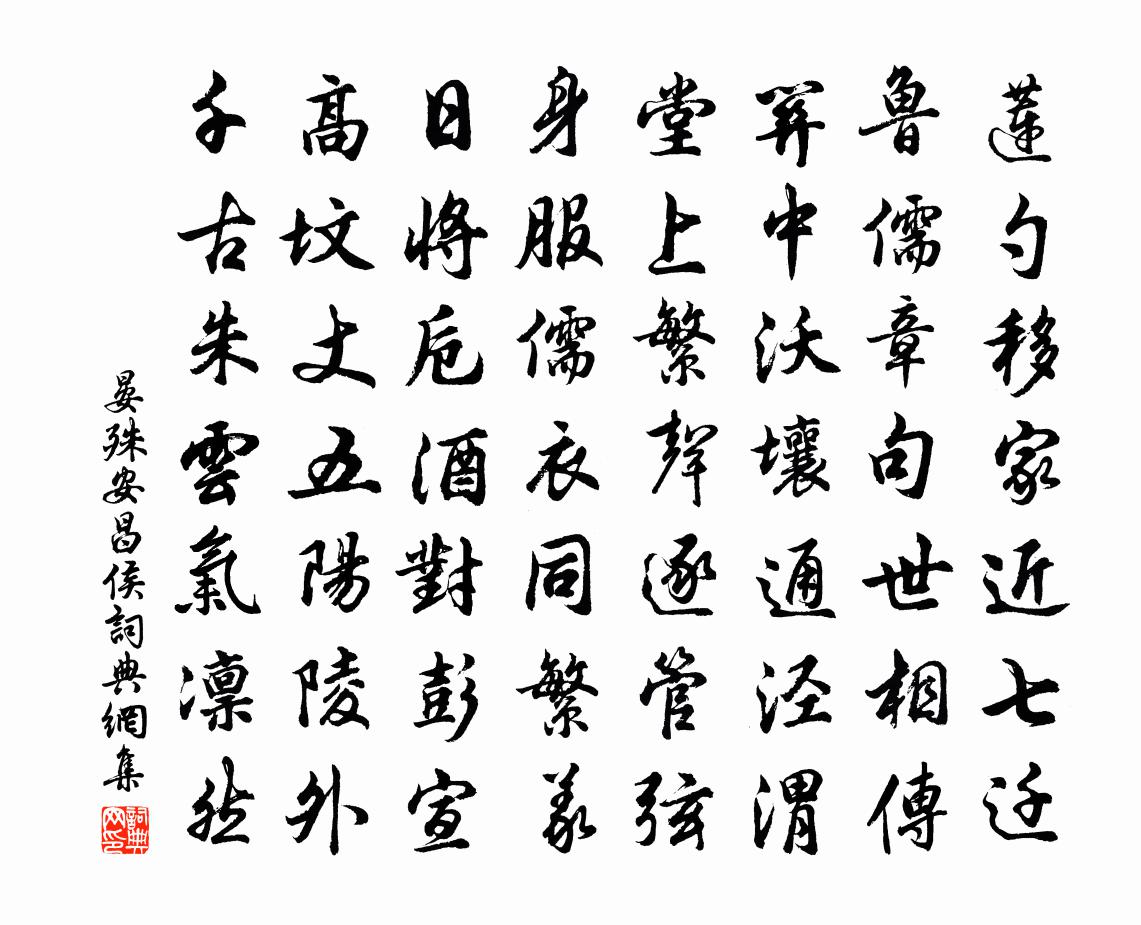 蓮勺移家近七迁
魯儒章句世相傳
関中沃壤通泾渭
堂上繁聲逐管弦
身服儒衣同繁義
日將卮酒對彭宣
高坟丈五陽陵外
千古朱雲氣凛然
晏殊安昌侯詞典網集
詞典网印